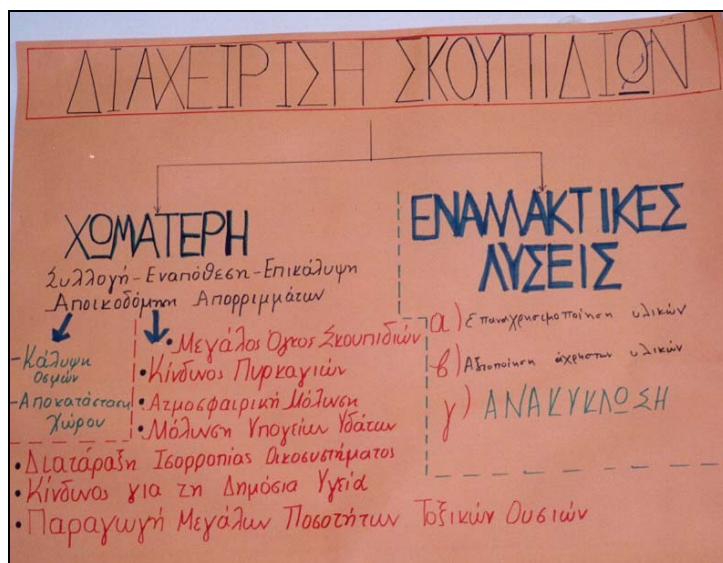 ΔΙΑΧΕΙΡΙΣΗ ΣΚΟΥΠΙΔΙΩΝ
ΧΩΜΑΤΕΡΗ
Συλλογή-Εναπόθεση-Επικάλυψη
Αποικοδόμηση Απορριμμάτων
-Κάλυψη
Οσμών
-Αποκατάσταση
Χώρου
• Μεγάλος Όγκος Σκουπιδιών
• Κίνδυνος Πυρκαγιών
• Ατμοσφαιρική Μόλυνση
• Μόλυνση Υπογείων Υδάτων
• Διατάραξη Ισορροπίας Οικοσυστήματος
• Κίνδυνος για τη Δημόσια Υγεία
• Παραγωγή Μεγάλων Ποσοτήτων Τοξικών Ουσιών
ΕΝΑΛΛΑΚΤΙΚΕΣ
ΛΥΣΕΙΣ
α) Επαναχρησιμοποίηση υλικών
β) Αξιοποίηση άχρηστων υλικών
γ) ΑΝΑΚΥΚΛΩΣΗ